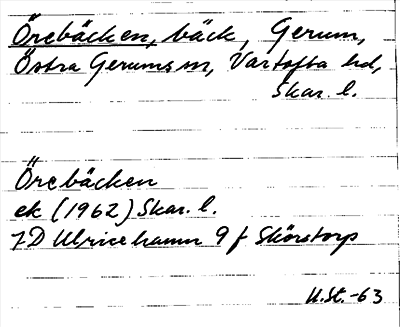 Örebäcken, bäck, Gerum,
Östra Gerums sn, Vartofta hd,
Skar. l.
Örebäcken
ek (1962) Skar. l.
7D Ulricehamn 9f Skörstorp
U.St.-63